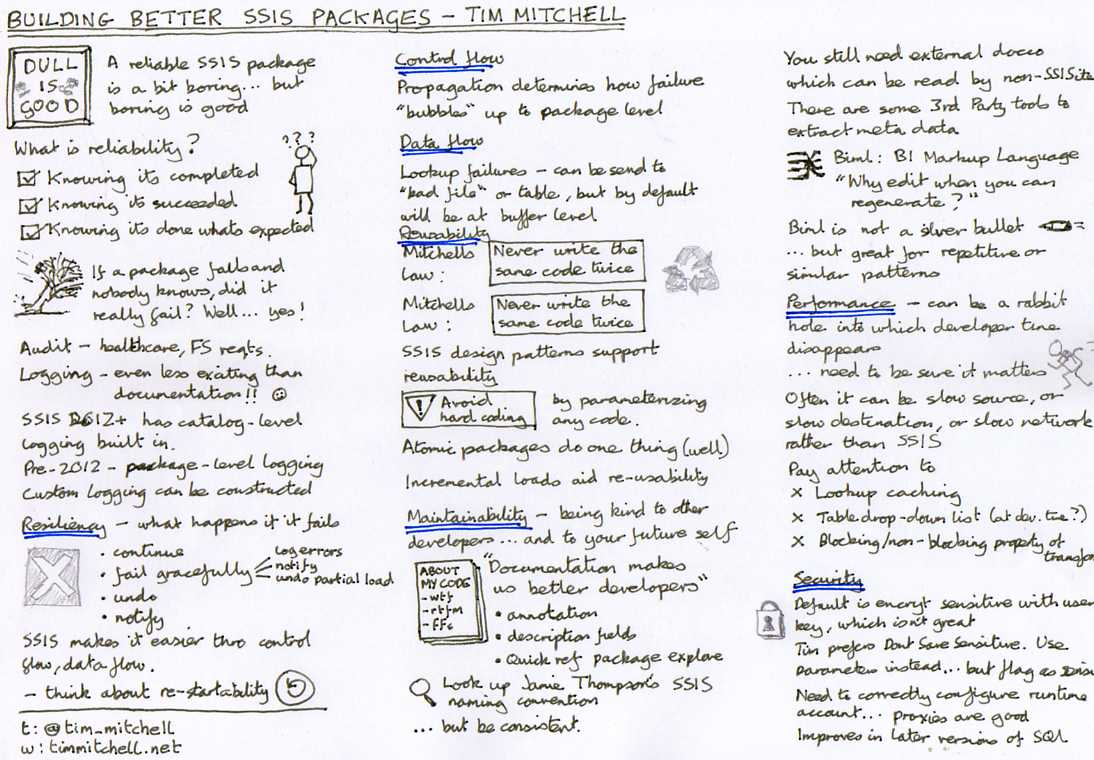 BUILDING BETTER SSIS PACKAGES – TIM MITCHELL
DULL
IS
GOOD
A reliable SSIS package
is a bit boring... but
boring is good
What is reliability?
???
Knowing its completed
Knowing it's succeeded
Knowing its done whats expected
If a package falls and
nobody knows, did it
really fail? Well... yes!
Audit – healthcare, FS reqts.
Logging – even less exiting than
documentation!!
SSIS 2012+ has catalog-level
logging built in.
Pre-2012 – package-level logging
Custom logging can be constructed
Resiliency – what happens if it fails
• continue
• fail gracefully
log errors
notify
undo partial load
• undo
• notify
SSIS makes it easier thro control
flow, data flow.
– think about re-startability
t: @tim_mitchell
w: timmitchell.net
Control flow
Propagation determines how failure
"bubbles" up to package level
Data flow
Lookup failures – can be send to
"bad file" or table, but by default
will be at buffer level
Reusability
Mitchells
Law:
Never write the
same code twice
Mitchells
Law:
Never write the
same code twice
SSIS design patterns support
reusability
! Avoid
hard coding
by parameterizing
any code.
Atomic packages do one thing (well)
Incremental loads aid re-usability
Maintainability – being kind to other
developers... and to your future self
ABOUT
MY CODE
- wtf
- rtfm
- ffs
"Documentation makes
us better developers"
• annotation
• description fields
• Quick ref package explore
Look up Jamie Thompson's SSIS
naming convention
... but be consistent.
You still need external docco
which can be read by non-SSISite
There are some 3rd Party tools to
extract meta data
Biml: BI Markup Language
"Why edit when you can
regenerate?"
Biml is not a silver bullet
... but great for repetitive or
similar patterns
Performance – can be a rabbit
hole into which developer time
disappears
... need to be sure it matters
Often it can be slow source, or
slow destination, or slow network
rather than SSIS
Pay attention to
x Lookup caching
x Table drop-down list (at dev. time?)
x Blocking/non-blocking property of
transfor
Security
Default is encrypt sensitive with user
key, which isn't great
Tim prefers Dont Save Sensitive. Use
parameters instead... but flag as sensi
Need to correctly configure runtime
account... proxies are good
Improves in later versions of SQL